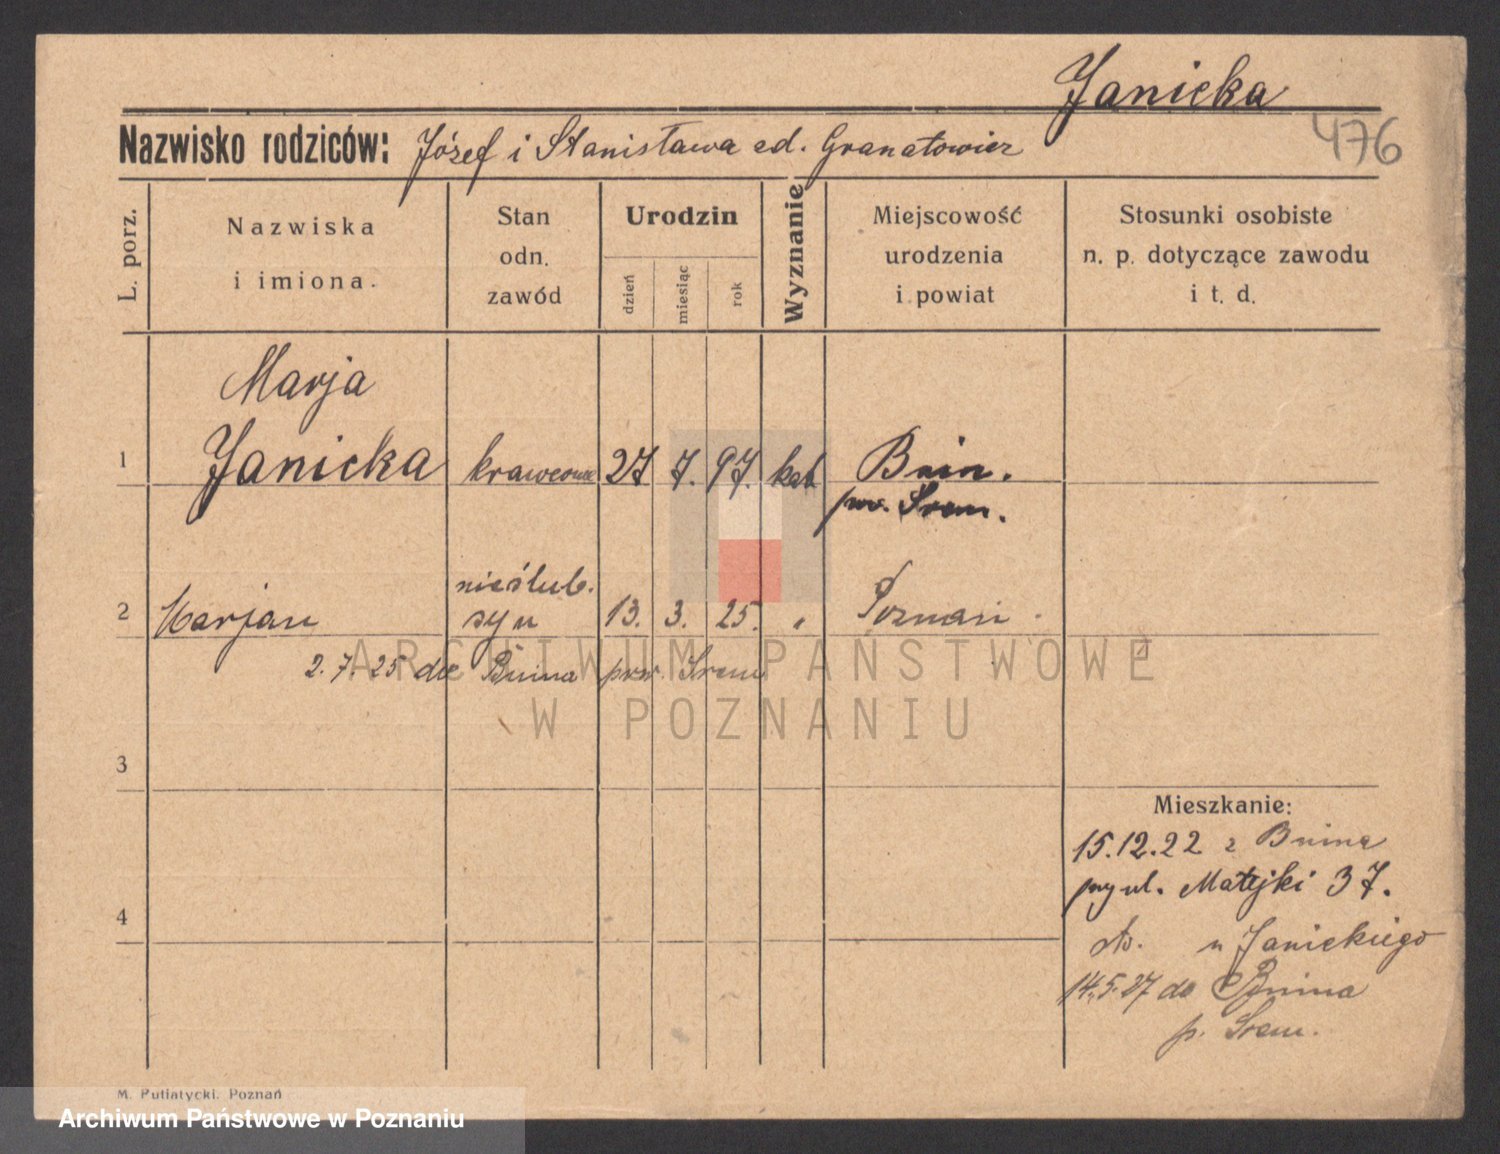 Janicka
476
Nazwisko rodziców: Józef i Stanisława zd. Granatowicz
L. porz.
Nazwiska
i imiona.
Stan
odn.
zawód
Urodzin
dzień
miesiąc
rok
Wyznanie
Miejscowość
urodzenia
i powiat
Stosunki osobiste
n. p. dotyczące zawodu
i t. d.
Marja
1 Janicka krawcowa 27 7. 97. kat Bnin.
pow. Śrem.
nieślub.
2 Marjan syn 13. 3. 25. " Poznań
2.7.25 do Bnina pow. Śrem
ARCHIWUM PAŃSTWOWE
W POZNANIU
3
Mieszkanie:
15.12.22 z Bnina
przy ul. Matejki 37.
4
u Janickiego
14.5.27 do Bnina
p. Śrem.
M. Putiatycki. Poznań
Archiwum Państwowe w Poznaniu